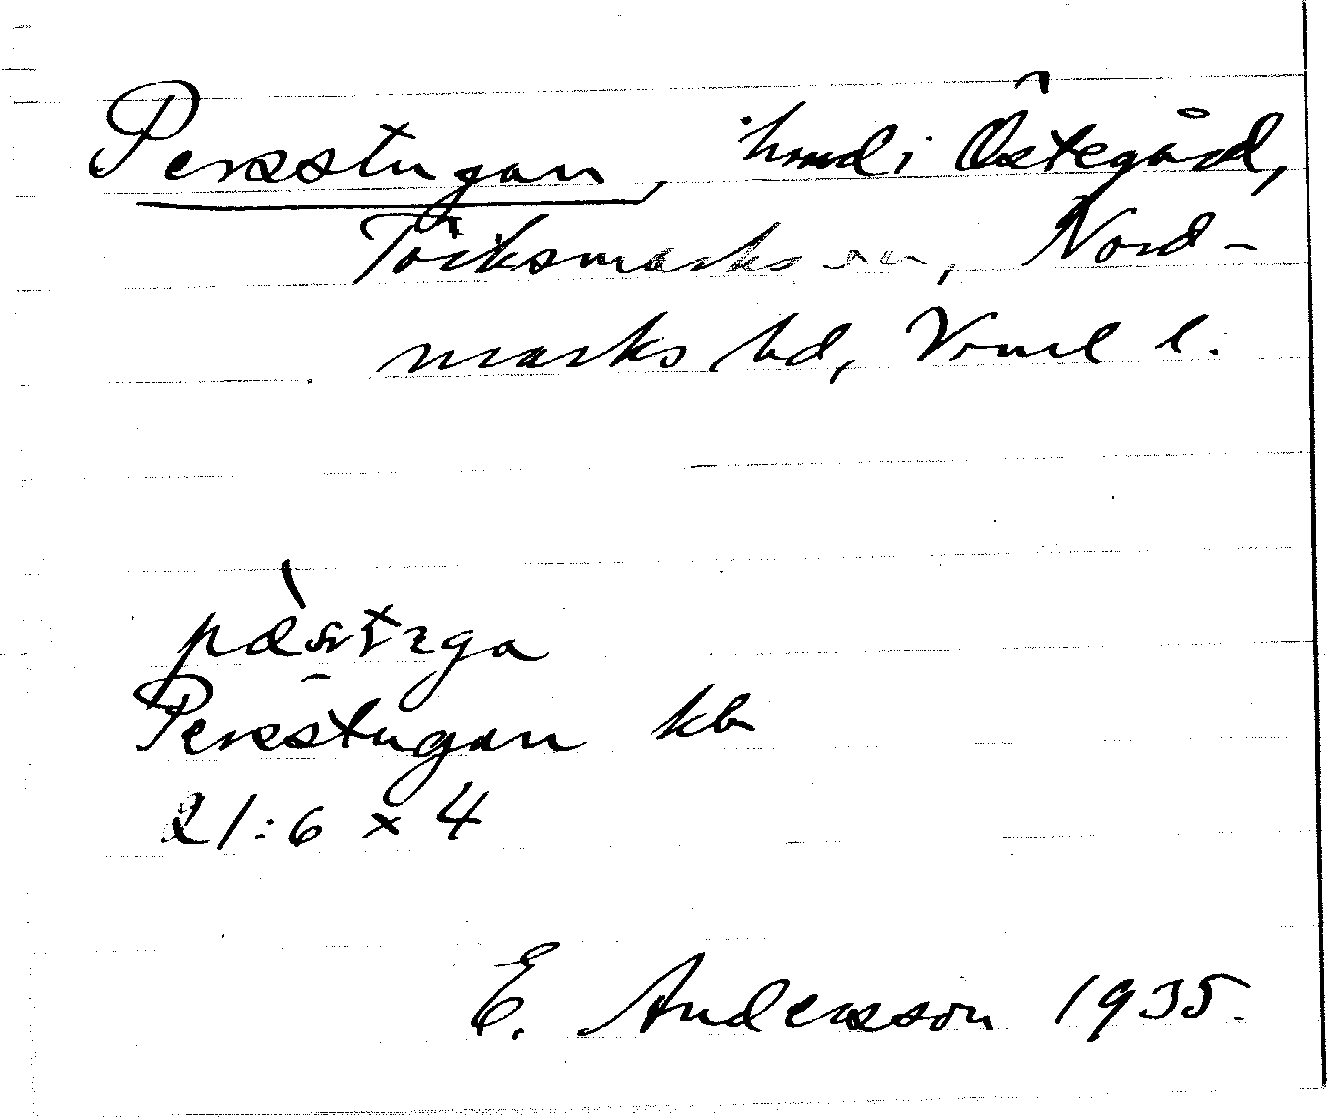 Persstugan, hmd i Östegård,
Töcksmarks sn, Nord-
marks hd, Vrml l.
pæ̀stʋga
Persstugan kb
21:6 x 4
E. Andersson 1935.